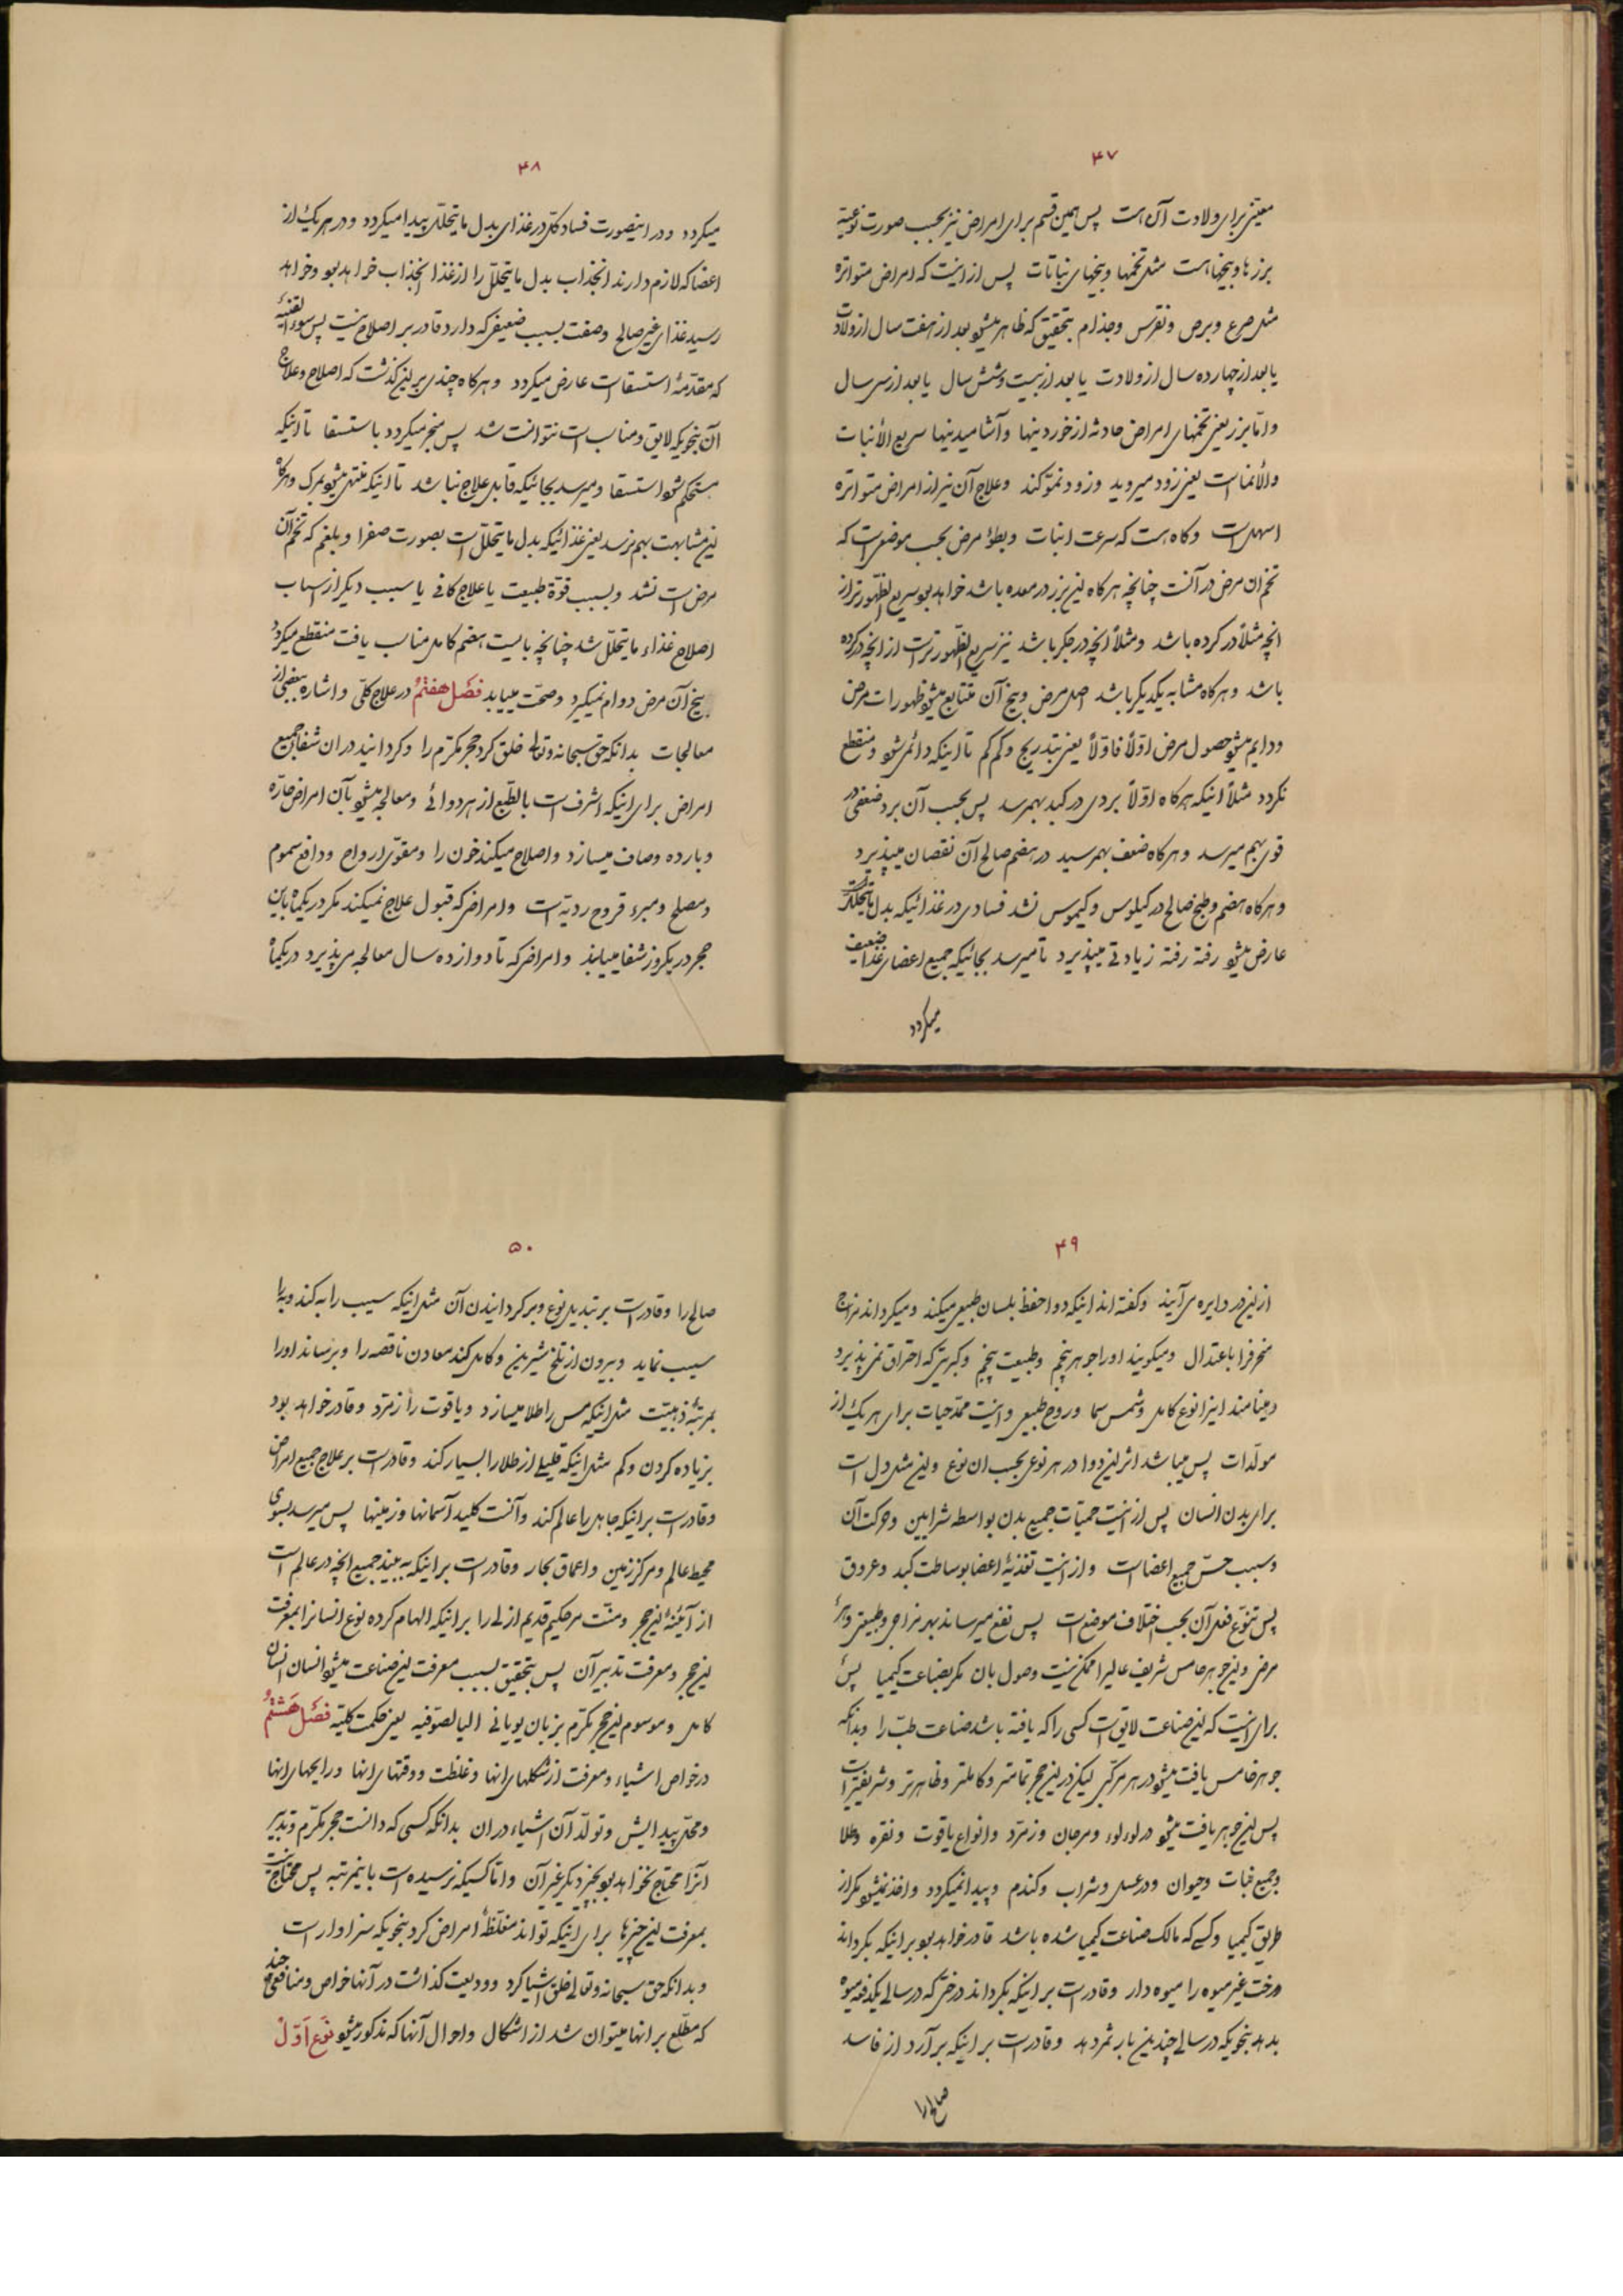 ۴۷
معیّنی برای ولادت آن است پس همین قسم برای امراض نیز بحسب صورت نوعیّه
بزرها و بیخهاست مثل تخمها و بیخهای نباتات پس از اینست که امراض متواتره
مثل صرع و برص و نقرس و جذام بتحقیق که ظاهر میشود بعد از هفت سال از ولادت
یا بعد از چهارده سال از ولادت یا بعد از بیست و شش سال یا بعد از سی سال
و امّا بزر یعنی تخمهای امراض حادثه از خوردینها و آشامیدینها سریع الأنبات
والأنماست یعنی زود میروید و زود نموّ کند و علاج آن نیز از امراض متواتره
اسهل است و گاه هست که سرعت انبات و بطؤ مرض بحسب موضعی است که
تخم ان مرض در آنست چنانچه هرگاه این بزر در معده باشد خواهد بود سریع الظّهورتر از
انچه مثلاً در گرده باشد و مثلاً انچه در جگر باشد نیز سریع الظّهورتر است از انچه در گرده
باشد و هرگاه مشابه یکدیگر باشد اصل مرض و بیخ آن متتابع میشود ظهورات مرض
و دایم میشود حصول مرض اوّلاً فاوّلاً یعنی بتدریج و کم کم تا اینکه دائمی شود و منقطع
نگردد مثلاً اینکه هرگاه اوّلاً بردی در کبد بهمرسد پس بحسب آن برد ضعفی در
قوی بهم میرسد و هرگاه ضعف بهمرسید در هضم صالح آن نقصان میپذیرد
و هرگاه هضم و طبخ صالح در کیلوس و کیموس نشد فسادی در غذائیکه بدل مایتحلّل است
عارض میشود رفته رفته زیادتی میپذیرد تا میرسد بجائیکه جمیع اعضای غذا ضعیف
میگردد
۴۸
میگردد و در اینصورت فساد کلّی در غذای بدل مایتحلّل پیدا میگردد و در هر یک از
اعضا که لازم دارند انجذاب بدل مایتحلّل را از غذا انجذاب خواهد بود و خواهد
رسید غذای غیر صالح و صفت بسبب ضعیفی که دارد قادر بر اصلاح نیست پس سوء القنیه
که مقدّمهٔ استسقاست عارض میگردد و هرگاه چندی بر این گذشت که اصلاح و علاج
آن بنحویکه لایق و مناسب است نتوانست شد پس منجر میگردد باستسقا تا اینکه
مستحکم شود استسقا و میرسد بجائیکه قابل علاج نباشد تا اینکه منتهی میشود بمرگ و هرگاه
این مشابهت بهم نرسد یعنی غذائیکه بدل مایتحلّل است بصورت صفرا و بلغم که تخم آن
مرض است نشد و بسبب قوّة طبیعت یا علاج کافی یا سبب دیگر از اسباب
اصلاح غذاء مایتحلّل شد چنانچه بایست هضم کامل مناسب یافت منقطع میگردد
بیخ آن مرض دوام نمیگیرد و صحّت مییابد فصل هفتم در علاج کلّی و اشاره ببعضی از
معالجات بدانکه حق سبحانه وتعالی خلق کرد حجر مکرّم را و گردانید در ان شفای جمیع
امراض برای اینکه اشرف است بالطّبع از هر دوائی و معالجه میشود بآن امراض حارّه
و بارده و صاف میسازد و اصلاح میکند خون را و مقوّی ارواح و دافع سموم
و مصلح و مبرء قروح ردیّه است و امراضی که قبول علاج نمیکند مگر در یکماه باین
حجر در یکروز شفا مییابند و امراضی که تا دوازده سال معالجه می پذیرد در یکماه
۴۹
از این در دایره می آیند و گفته اند اینکه دوا حفظ بلسان طبیعی میکند و میگرداند مزاج
منحرف را باعتدال و میگویند اورا جوهر پنجم و طبیعت پنجم و کبریتی که احتراق نمی پذیرد
و مینامند اینرا نوع کامل و شمس سما و روح طبیعی و اینست ممدّ حیات برای هر یک از
مولّدات پس میباشد اثر این دوا در هر نوعی بحسب ان نوع و این مثل دل است
برای بدن انسان پس از اینست حمیّات جمیع بدن بواسطه شرایین و حرکت آن
و سبب حسّ جمیع اعضاست و از اینست تغذیهٔ اعضا بوساطت کبد و عروق
پس تنوّع فعل آن بحسب اختلاف موضع است پس نفع میرساند بهر مزاجی و طبیعتی و هر
مرضی و این جوهر خامس شریف عالیرا ممکن نیست وصول بان مگر بصناعت کیمیا پس
برای اینست که این صناعت لایق است کسی را که یافته باشد صناعت طبّ را و بدانکه
جوهر خامس یافت میشود در هر مرکّبی لیکن در این حجر تمامتر و کاملتر و ظاهرتر و شریفتر است
پس این جوهر یافت میشود در لولوء و مرجان و زمرّد و انواع یاقوت و نقره و طلا
و جمیع نبات و حیوان و در عسل و شراب و گندم و پیدا نمیگردد و اخذ نمیشود مگر از
طریق کیمیا و کسی که مالک صناعت کیمیا شده باشد قادر خواهد بود بر اینکه بگرداند
درخت غیر میوه را میوه دار و قادر است بر اینکه بگرداند درختی که در سالی یکدفعه میوه
بدهد بنحویکه در سالی چندین بار ثمر دهد و قادر است بر اینکه برآرد از فاسد
صالح را
۵۰
صالح را و قادر است بر تبدیل نوع و برگردانیدن آن مثل اینکه سیب را به کند و به را
سیب نماید و بیرون از تلخ شیرین و کامل کند معادن ناقصه را و برساند اورا
بمرتبهٔ ذهبیّت مثل اینکه مس را طلا میسازد و یاقوت را زمرّد و قادر خواهد بود
بزیاده کردن و کم مثل اینکه قلیلی از طلا را بسیار کند و قادر است بر علاج جمیع امراض
و قادر است بر اینکه جاهل را عالم کند و آنست کلید آسمانها و زمینها پس میرسد بسوی
محیط عالم و مرکز زمین و اعماق بحار و قادر است بر اینکه به بیند جمیع انچه در عالم است
از آینهٔ این حجر و منّت مر حکیم قدیم ازلی را بر اینکه الهام کرده نوع انسانرا بمعرفت
این حجر و معرفت تدبیر آن پس بتحقیق بسبب معرفت این صناعت میشود انسان انسان
کامل و موسوم این حجر مکرّم بزبان یونانی الیا لصّوفیه یعنی حکمت کلّیّه فصل هشتم
در خواص اشیاء و معرفت از شکلهای انها و غلظت و وقتهای انها و رایحهای انها
و محلّ پیدایش و تولّد آن اشیاء در ان بدانکه کسی که دانست حجر مکرّم و تدبیر
انرا محتاج نخواهد بود بچیز دیگر غیر آن و امّا کسیکه نرسیده است باینمرتبه پس محتاج است
بمعرفت این چیزها برای اینکه تواند مغلّظهٔ امراض کرد بنحویکه سزاوار است
و بدانکه حق سبحانه وتعالی خلق اشیا کرد و ودیعت گذاشت در آنها خواص و منافعی چند
که مطّلع بر انها میتوان شد از اشکال و احوال آنها که مذکور میشود نوع اوّل